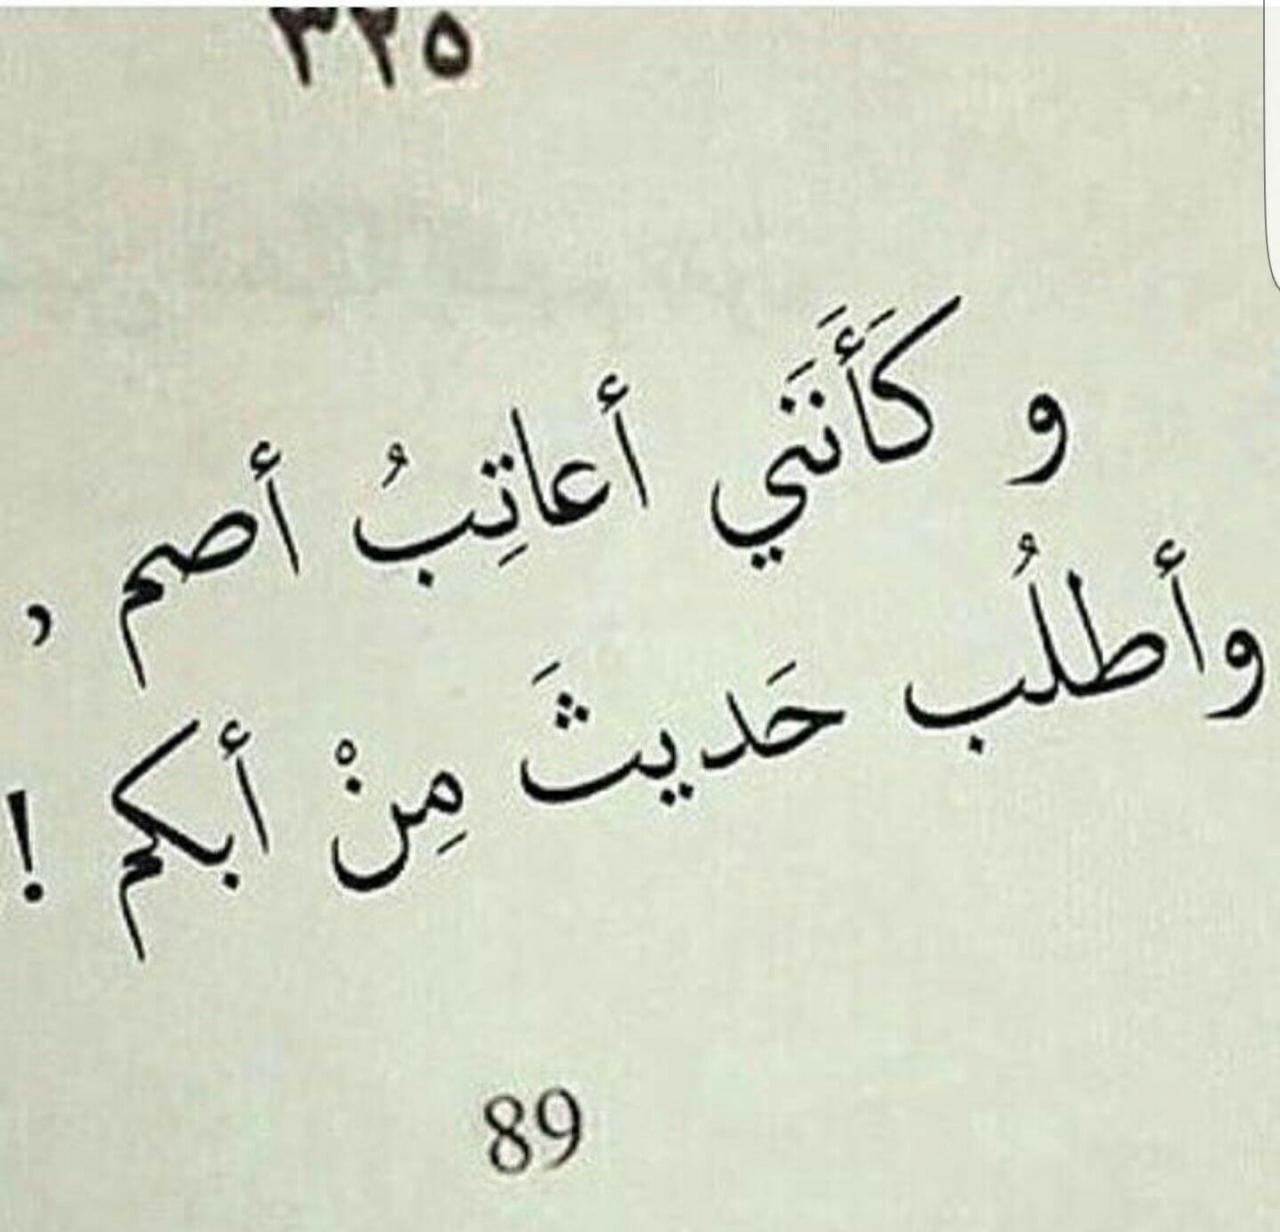 ٣٢٥
و كَأَنَني أعاتِبُ أصم ,
وأطلُب حَديثَ مِنْ أبكم !
89